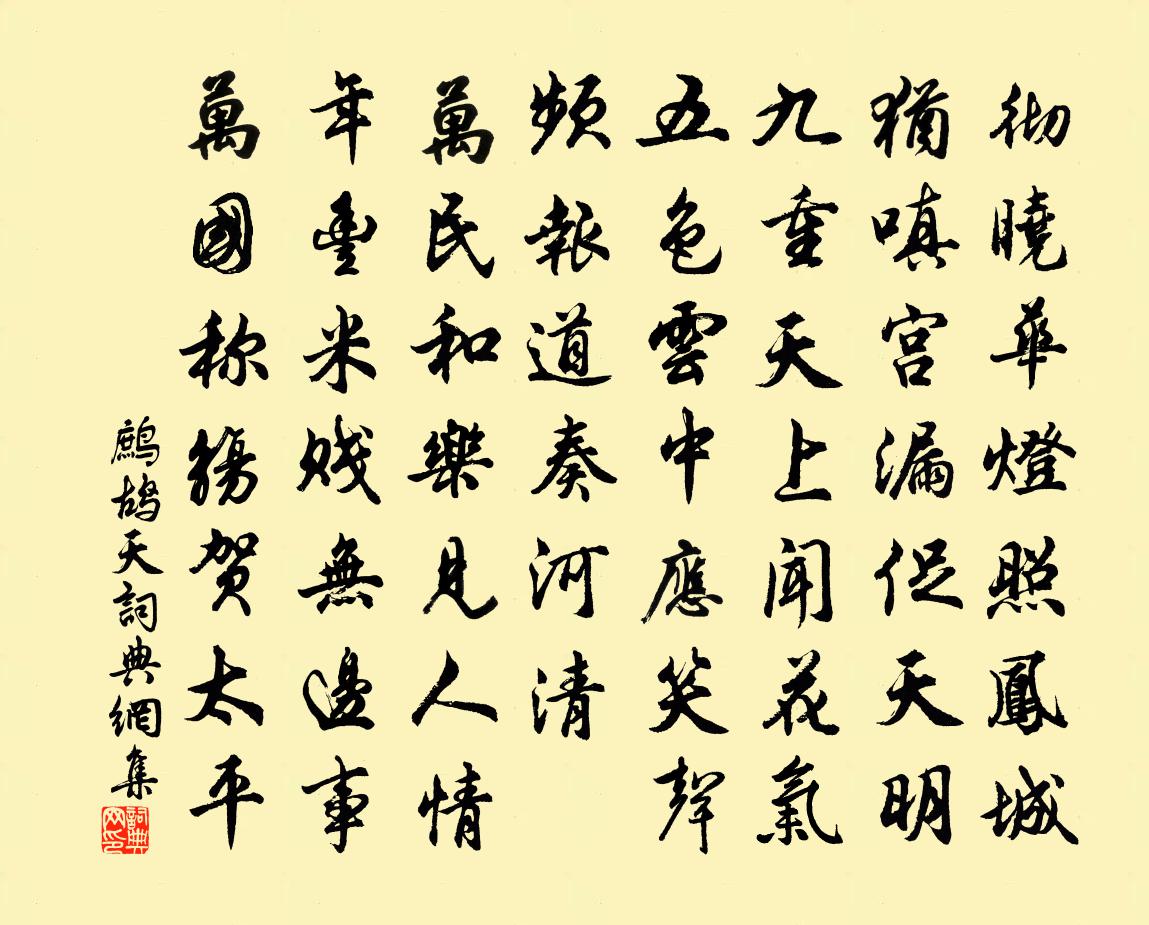 彻曉華燈照鳳城
猶嗔宮漏促天明
九重天上聞花氣
五色雲中應笑聲
頻報道奏河清
萬民和樂見人情
年豐米賤無邊事
萬國称觴賀太平
鷓鴣天詞典網集
詞典
网印